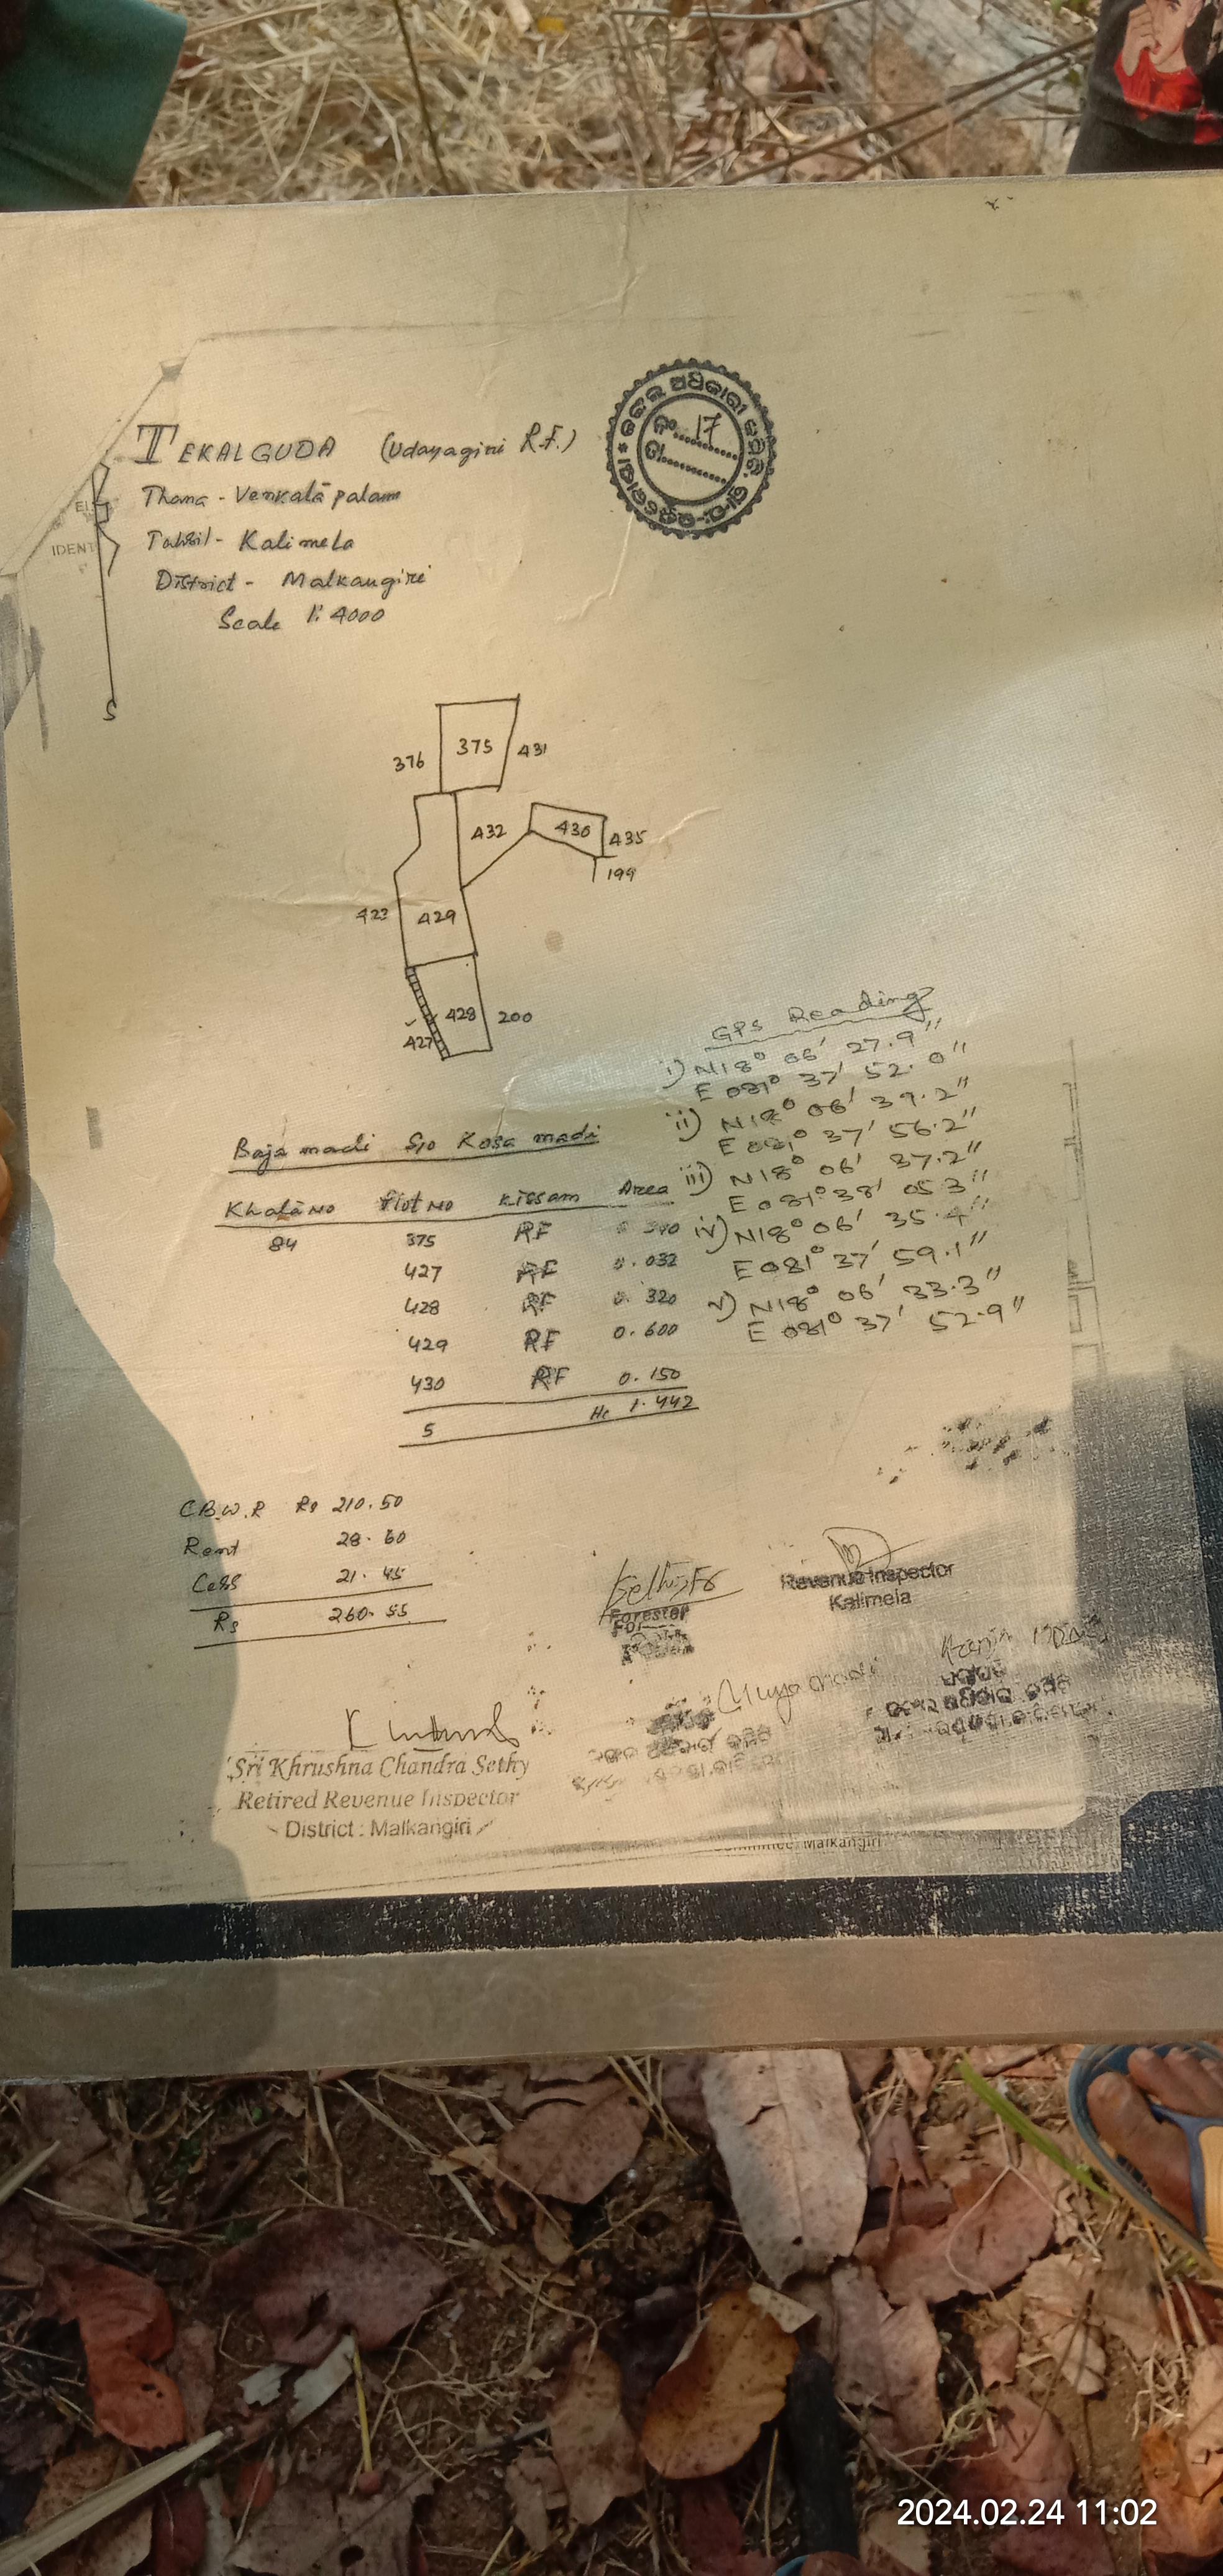 TEKALGUDA (Udayagiri R.F.)
Thana - Venkatapalam
Tahsil - Kalimela
District - Malkangiri
Scale 1:4000
17
IDENT
S
375
376
431
432
430
435
199
423
429
428
200
427
GPS Reading
i) N18° 06' 27.9"
E 081° 37' 52.0"
ii) N18° 06' 39.2"
E 081° 37' 56.2"
iii) N18° 06' 37.2"
E 081° 38' 05.3"
iv) N18° 06' 35.4"
E 081° 37' 59.1"
v) N18° 06' 33.3"
E 081° 37' 52.9"
Baja madi S/o Kosa madi
Khata No Plot No Kissam Area
84 375 RF
427 RF 0.032
428 RF 0.320
429 RF 0.600
430 RF 0.150
5 Hc 1.442
C.B.W.R Rs 210.50
Rent 28.60
Cess 21.45
Rs 260.55
Forester
Revenue Inspector
Kalimela
Muya madi
Sri Khrushna Chandra Sethy
Retired Revenue Inspector
District : Malkangiri
Malkangiri
2024.02.24 11:02